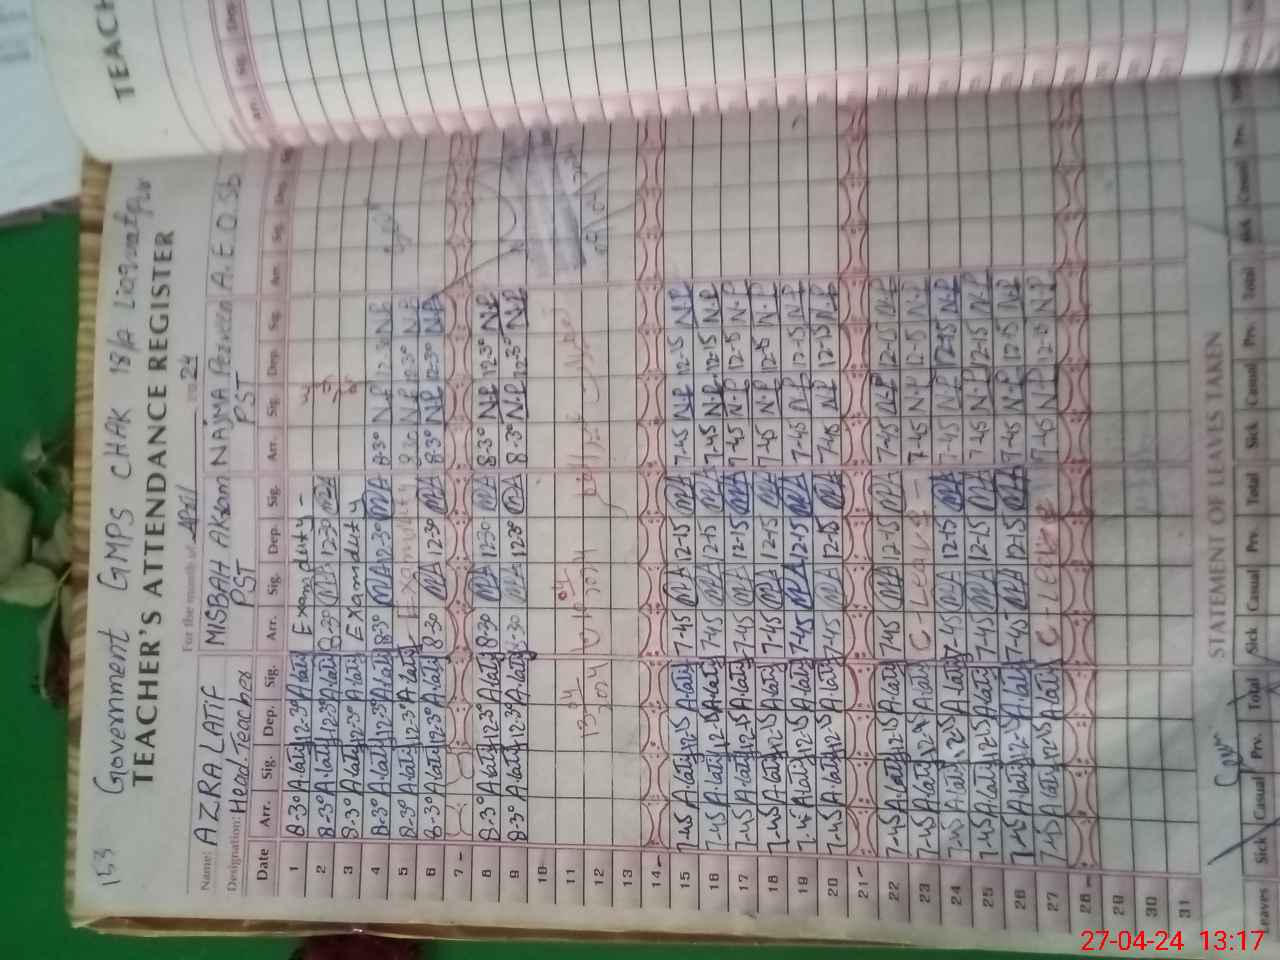 153 Government GMPS CHAK 18/A Liaquatpur
TEACHER'S ATTENDANCE REGISTER
For the month of April 20 24
Name: AZRA LATIF MISBAH AKRAM NAJMA Perveen A.E.O. Sb
Designation: Head. Teacher PST PST
Date Arr. Sig. Dep. Sig. Arr. Sig. Dep. Sig. Arr. Sig. Dep. Sig. Arr. Sig. Dep. Sig.
1 8-30 A.latif 12-30 A.latif Exam duty -
2 8-30 A.latif 12-30 A.latif 8-30 MA 12-30 MA
3 8-30 A.latif 12-30 A.latif Exam duty
4 8-30 A.latif 12-30 A.latif 8-30 MA 12-30 MA 8-30 N.P 12-30 N.P
5 8-30 A.latif 12-30 A.latif - Exam duty 8-30 N.P 12-30 N.P
6 8-30 A.latif 12-30 A.latif 8-30 MA 12-30 MA 8-30 N.P 12-30 N.P
7 -
8 8-30 A.latif 12-30 A.latif 8-30 MA 12-30 MA 8-30 N.P 12-30 N.P
9 8-30 A.latif 12-30 A.latif 8-30 MA 12-30 MA 8-30 N.P 12-30 N.P
10
11
12
13
14 -
15 7-45 A.latif 12-15 A.latif 7-45 MA 12-15 MA 7-45 N.P 12-15 N.P
16 7-45 A.latif 12-15 A.latif 7-45 MA 12-15 MA 7-45 N.P 12-15 N.P
17 7-45 A.latif 12-15 A.latif 7-45 MA 12-15 MA 7-45 N.P 12-15 N.P
18 7-45 A.latif 12-15 A.latif 7-45 MA 12-15 MA 7-45 N.P 12-15 N.P
19 7-45 A.latif 12-15 A.latif 7-45 MA 12-15 MA 7-45 N.P 12-15 N.P
20 7-45 A.latif 12-15 A.latif 7-45 MA 12-15 MA 7-45 N.P 12-15 N.P
21 -
22 7-45 A.latif 12-15 A.latif 7-45 MA 12-15 MA 7-45 N.P 12-15 N.P
23 7-45 A.latif 12-15 A.latif C - Leave - 7-45 N.P 12-15 N.P
24 7-45 A.latif 12-15 A.latif 7-45 MA 12-15 MA 7-45 N.P 12-15 N.P
25 7-45 A.latif 12-15 A.latif 7-45 MA 12-15 MA 7-45 N.P 12-15 N.P
26 7-45 A.latif 12-15 A.latif 7-45 MA 12-15 MA 7-45 N.P 12-15 N.P
27 7-45 A.latif 12-15 A.latif C - Leave 7-45 N.P 12-15 N.P
28 -
29
30
31
STATEMENT OF LEAVES TAKEN
Leaves Sick Casual Prv. Total Sick Casual Prv. Total Sick Casual Prv. Total Sick Casual Prv.
TEACH
27-04-24 13:17